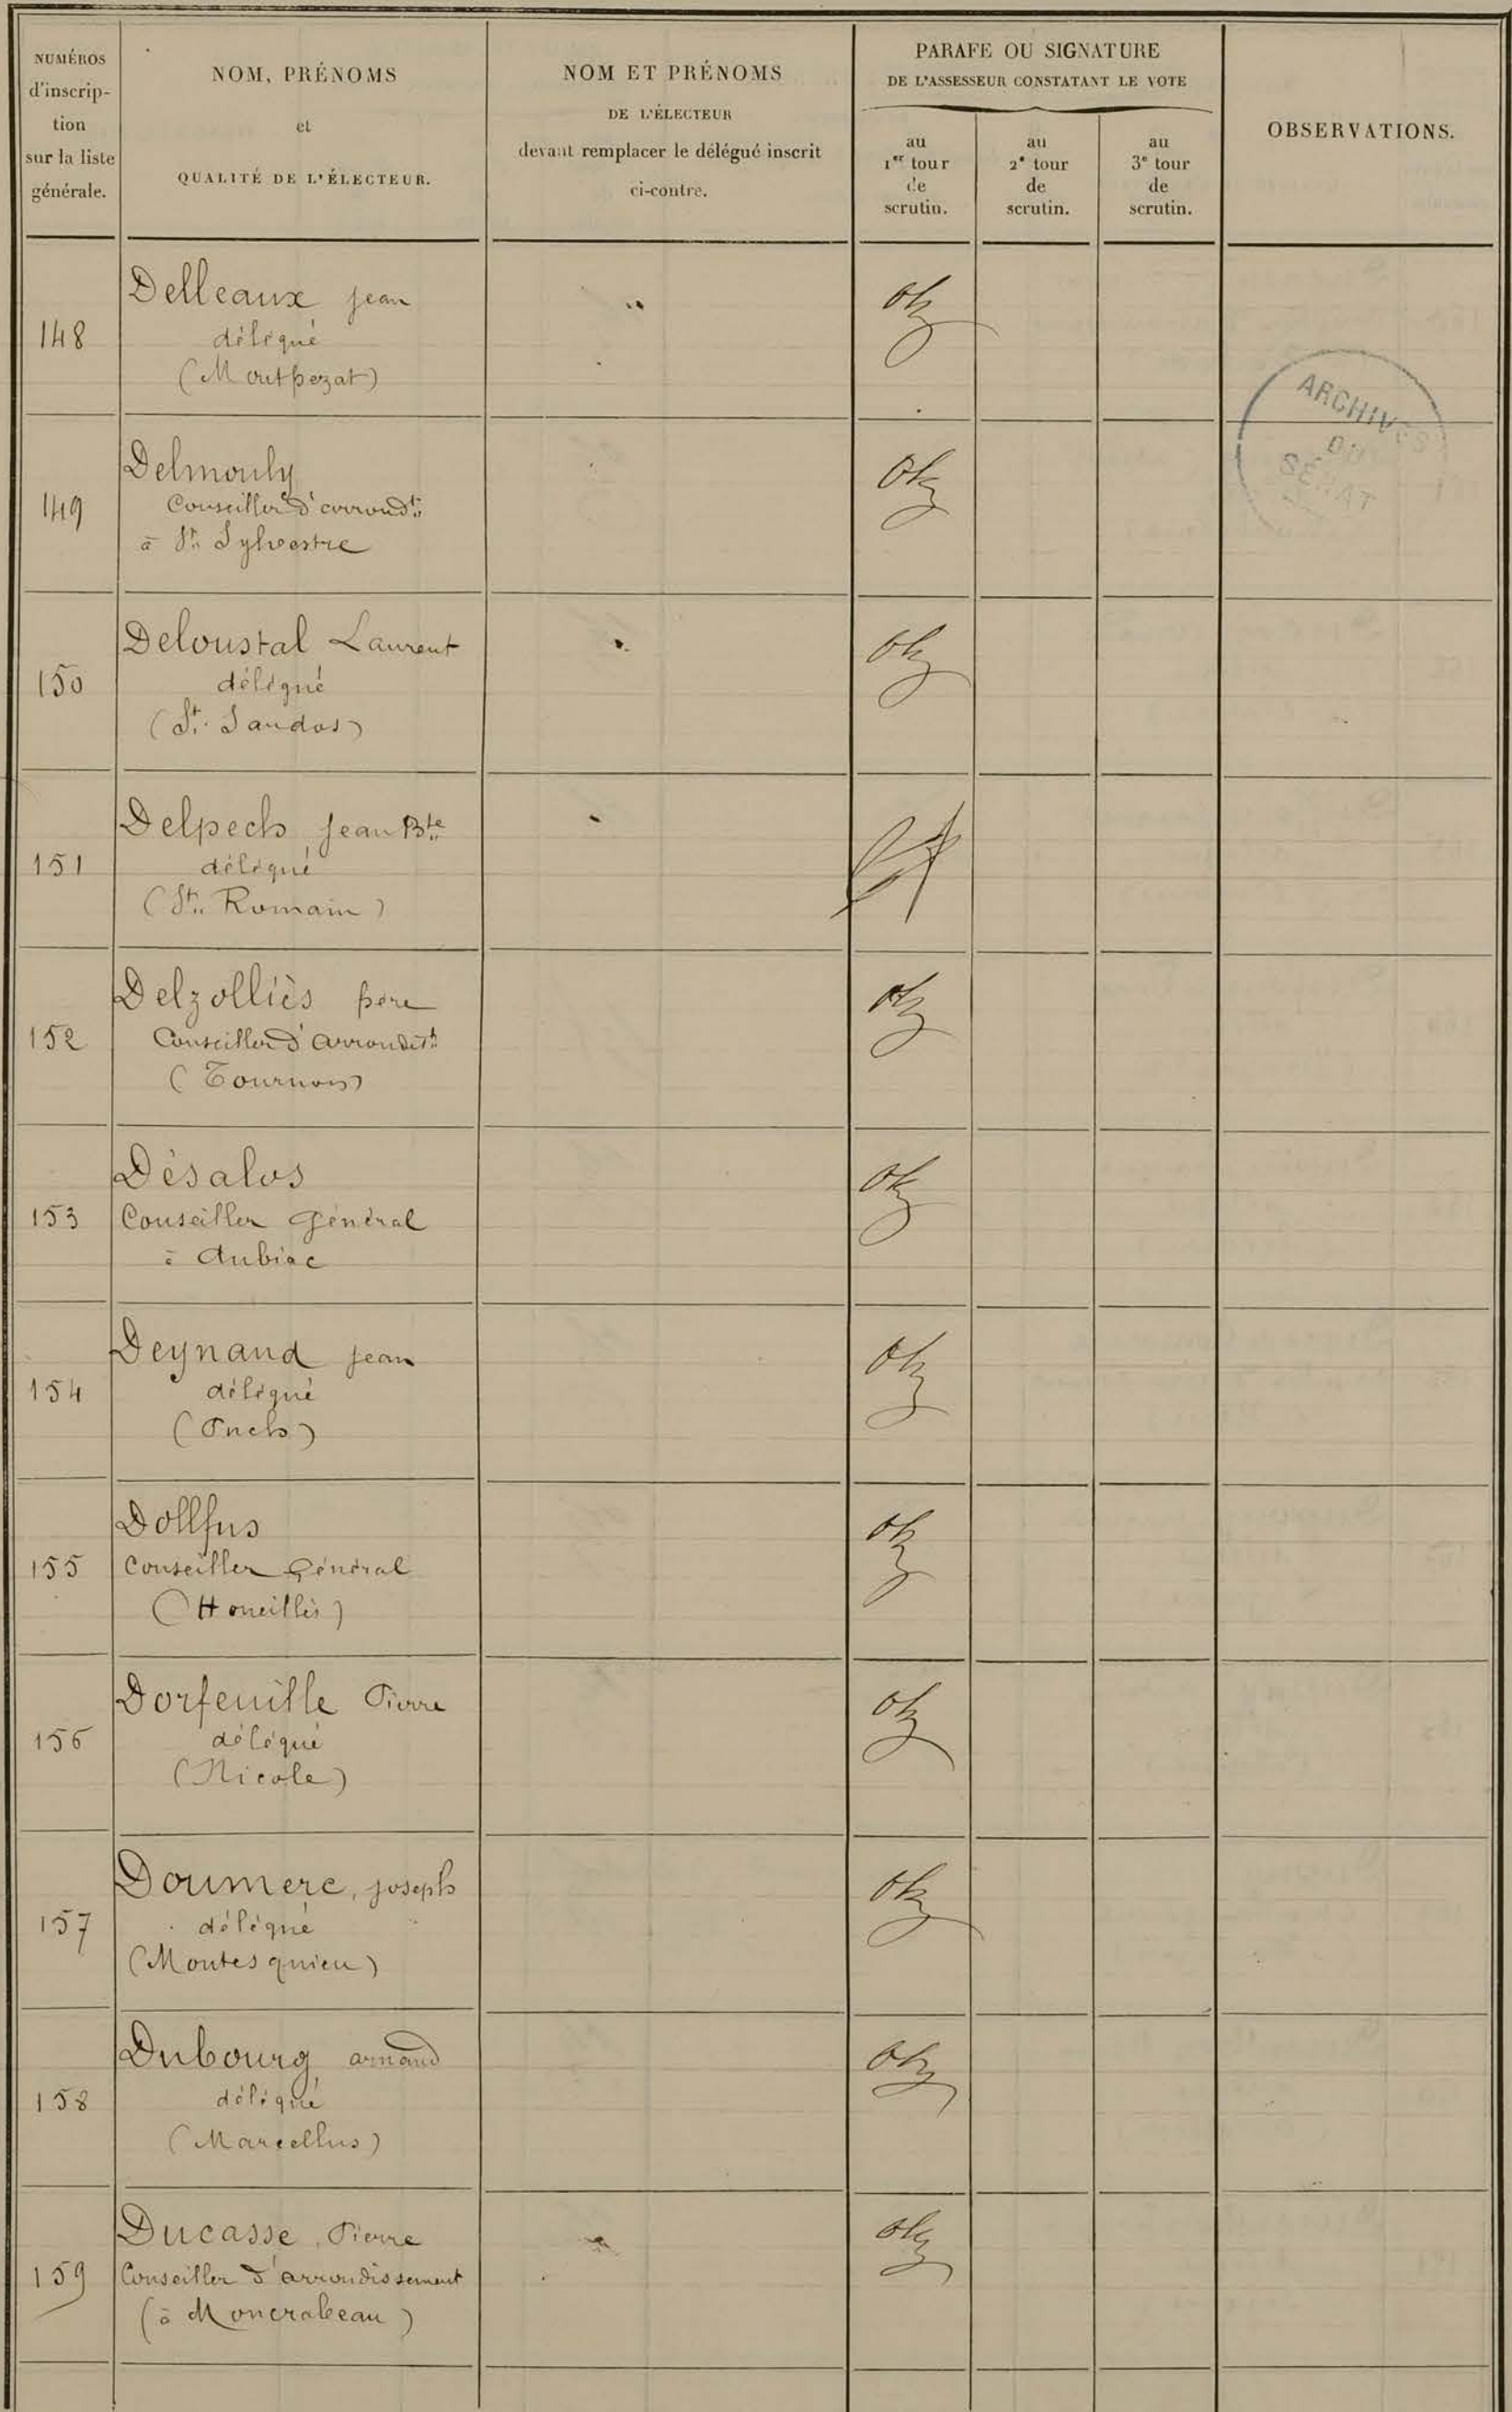 NUMÉROS
d'inscrip-
tion
sur la liste
générale.
NOM, PRÉNOMS
et
QUALITÉ DE L'ÉLECTEUR.
NOM ET PRÉNOMS
DE L'ÉLECTEUR
devant remplacer le délégué inscrit
ci-contre.
PARAFE OU SIGNATURE
DE L'ASSESSEUR CONSTATANT LE VOTE
au
1er tour
de
scrutin.
au
2e tour
de
scrutin.
au
3e tour
de
scrutin.
OBSERVATIONS.
148
Delleaux Jean
délégué
(Montpezat)
ARCHIVES
DU
SÉNAT
149
Delmouly
Conseiller d'arrondt
à St Sylvestre
150
Deloustal Laurent
délégué
(St. Sardos)
151
Delpech Jean Bte
délégué
(St Romain)
152
Delzolliès père
Conseiller d'arrondist
(Tournon)
153
Désalos
Conseiller Général
à Aubiac
154
Deynaud Jean
délégué
(Puch)
155
Dollfus
Conseiller Général
(Houeillès)
156
Dorfeuille Pierre
délégué
(Nicole)
157
Doumerc, Joseph
délégué
(Montesquieu)
158
Dubourg Armand
délégué
(Marcellus)
159
Ducasse, Pierre
Conseiller d'arrondissement
(à Moncrabeau)